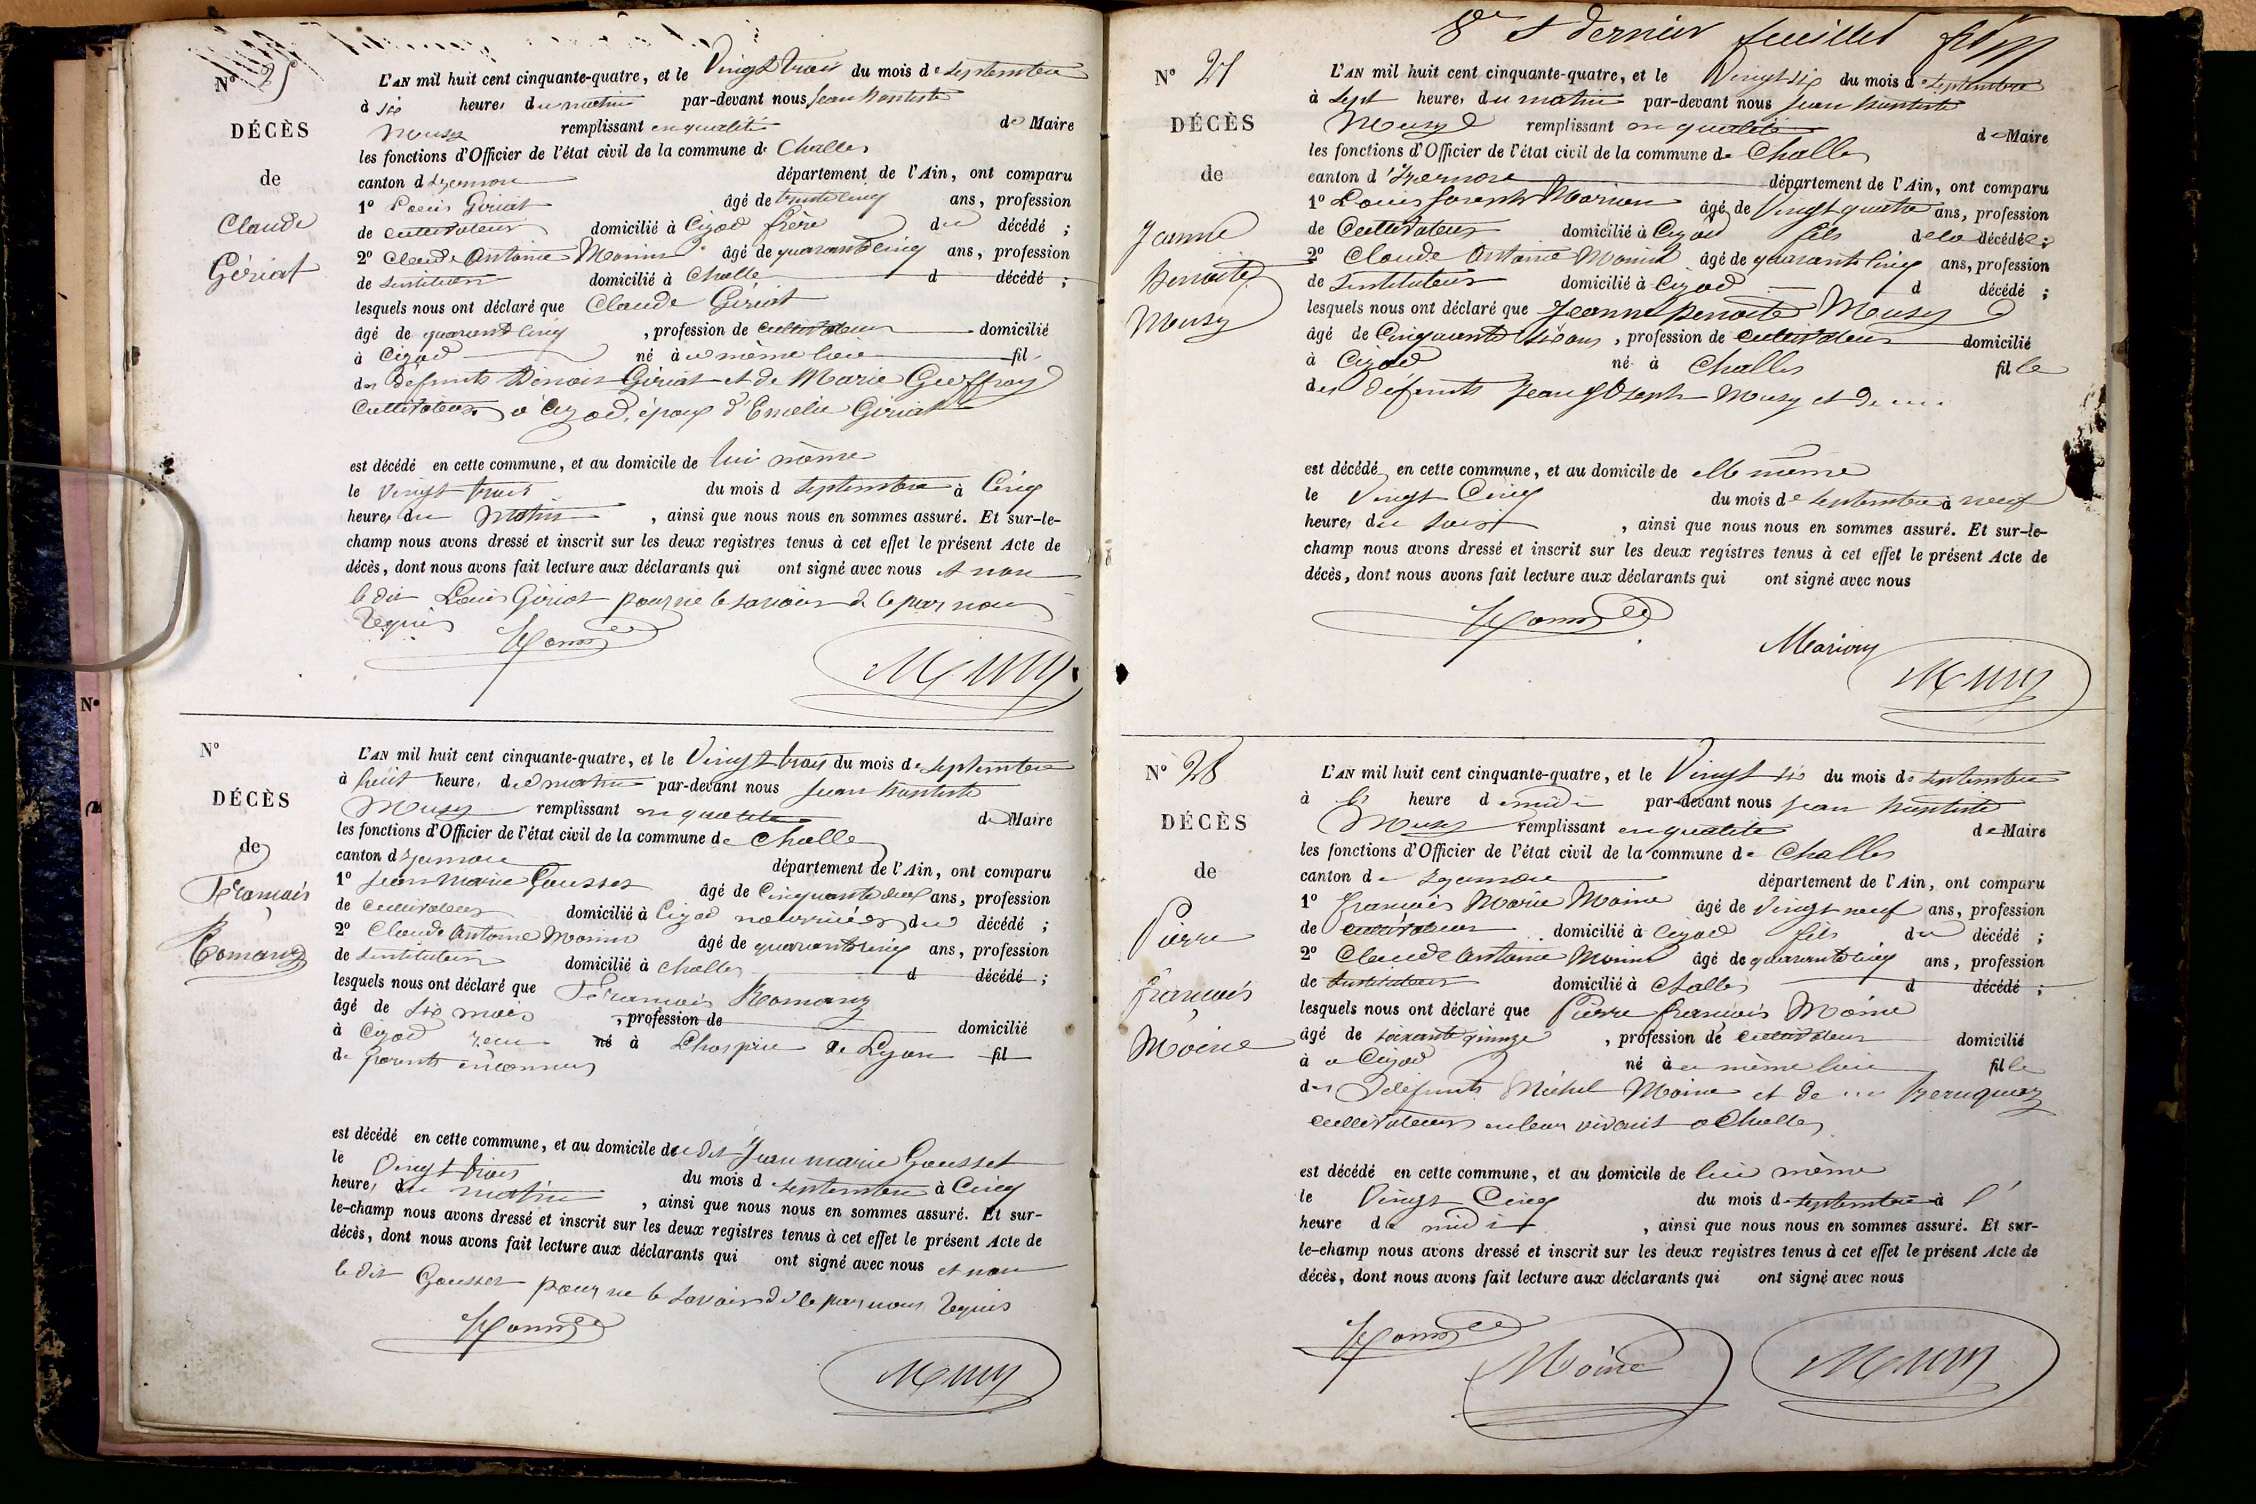 N° 25
DÉCÈS
de
Claude
Gériat
L'AN mil huit cent cinquante-quatre, et le Vingt trois du mois de septembre
à six heures du matin par-devant nous Jean Baptiste
Musy remplissant en qualité de Maire
les fonctions d'Officier de l'état civil de la commune de Challes
canton d'Izernore département de l'Ain, ont comparu
1° Louis Gériat âgé de trente cinq ans, profession
de cultivateur domicilié à Cizod frère du décédé ;
2° Claude Antoine Monin âgé de quarante cinq ans, profession
de Instituteur domicilié à Challe d décédé ;
lesquels nous ont déclaré que Claude Gériat
âgé de quarante cinq , profession de cultivateur domicilié
à Cizod né à au même lieu fil
des défunts Benoit Gériat et de Marie Geoffray
Cultivateurs à Cizod, époux d'Emelie Gériat
est décédé en cette commune, et au domicile de lui même
le Vingt trois du mois d septembre à Cinq
heures du Matin , ainsi que nous nous en sommes assuré. Et sur-le-
champ nous avons dressé et inscrit sur les deux registres tenus à cet effet le présent Acte de
décès, dont nous avons fait lecture aux déclarants qui ont signé avec nous et non
le dit Louis Gériat pour ne le savoir de le par nous
Requis
Monin
Musy
N°
DÉCÈS
de
François
Romany
L'AN mil huit cent cinquante-quatre, et le Vingt trois du mois de septembre
à huit heures du matin par-devant nous Jean Baptiste
Musy remplissant en qualité de Maire
les fonctions d'Officier de l'état civil de la commune de Challe
canton d'Izernore département de l'Ain, ont comparu
1° Jean Marie Gousset âgé de Cinquante deux ans, profession
de cultivateur domicilié à Cizod nourricier du décédé ;
2° Claude Antoine Monin âgé de quarante cinq ans, profession
de Instituteur domicilié à Challes d décédé ;
lesquels nous ont déclaré que François Romany
âgé de six mois , profession de domicilié
à Cizod né à L'hospice de Lyon fil
de parents inconnus
est décédé en cette commune, et au domicile du dit Jean marie Gousset
le Vingt trois du mois d septembre à Cinq
heures du matin , ainsi que nous nous en sommes assuré. Et sur-
le-champ nous avons dressé et inscrit sur les deux registres tenus à cet effet le présent Acte de
décès, dont nous avons fait lecture aux déclarants qui ont signé avec nous et non
le dit Gousset pour ne le savoir de le par nous Requis
Monin
Musy
8e et dernier feuillet
N° 27
DÉCÈS
de
Jeanne
Benoite
Musy
L'AN mil huit cent cinquante-quatre, et le Vingt six du mois de septembre
à sept heures du matin par-devant nous Jean Baptiste
Musy remplissant en qualité de Maire
les fonctions d'Officier de l'état civil de la commune de Challes
canton d'Izernore département de l'Ain, ont comparu
1° Louis Joseph Marion âgé de Vingt quatre ans, profession
de Cultivateur domicilié à Cizod fils de la décédée ;
2° Claude Antoine Monin âgé de quarante cinq ans, profession
de Instituteur domicilié à Cizod d décédé ;
lesquels nous ont déclaré que Jeanne Benoite Musy
âgé de Cinquante six ans , profession de cultivateur domicilié
à Cizod né à Challes fille
des défunts Jean Joseph Musy et de ...
est décédé en cette commune, et au domicile de elle même
le Vingt Cinq du mois de septembre à neuf
heures du soir , ainsi que nous nous en sommes assuré. Et sur-le-
champ nous avons dressé et inscrit sur les deux registres tenus à cet effet le présent Acte de
décès, dont nous avons fait lecture aux déclarants qui ont signé avec nous
Monin
Marion
Musy
N° 28
DÉCÈS
de
Pierre
françois
Moine
L'AN mil huit cent cinquante-quatre, et le Vingt six du mois de septembre
à heure de midi par-devant nous Jean Baptiste
Musy remplissant en qualité de Maire
les fonctions d'Officier de l'état civil de la commune de Challes
canton de Izernore département de l'Ain, ont comparu
1° françois Marie Moine âgé de Vingt neuf ans, profession
de cultivateur domicilié à Cizod fils du décédé ;
2° Claude Antoine Monin âgé de quarante cinq ans, profession
de Instituteur domicilié à Challes d décédé ;
lesquels nous ont déclaré que Pierre françois Moine
âgé de soixante quinze , profession de cultivateur domicilié
à a Cizod né à au même lieu fille
des défunts Michel Moine et de ...
cultivateurs en leur vivant a Challes
est décédé en cette commune, et au domicile de lui même
le Vingt Cinq du mois de septembre à l'
heure de midi , ainsi que nous nous en sommes assuré. Et sur-
le-champ nous avons dressé et inscrit sur les deux registres tenus à cet effet le présent Acte de
décès, dont nous avons fait lecture aux déclarants qui ont signé avec nous
Monin
Moine
Musy
N°